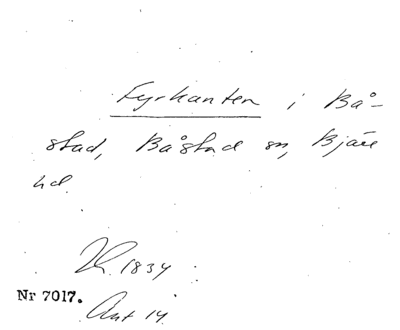 Fyrkanten i Bå-
stad, Båstad sn, Bjäre
hd.
1834
Nr 7017.
Ant 14